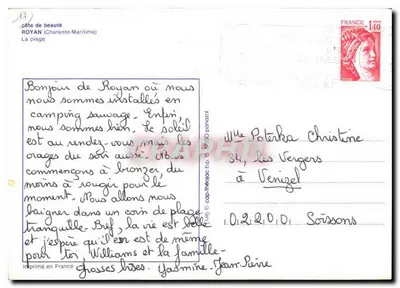 côte de beauté
ROYAN (Charente-Maritime)
La plage
FRANCE
1,40
Bonjour de Royan où nous
nous sommes installés en
camping sauvage. Enfin,
nous sommes bien. Le soleil
est au rendez-vous mais les
orages du soir aussi. Nous
commençons à bronzer, du
moins à rougir pour le
moment. Nous allons nous
baigner dans un coin de plage
tranquille. Bref, la vie est belle
et j'espère qu'il en est de même
pour toi, Williams et la famille.
Grosses bises. Yasmine. Jean-Pierre
Mlle Poterka Christine
34, les Vergers
à Vénizel
02200 Soissons
Imprimé en France